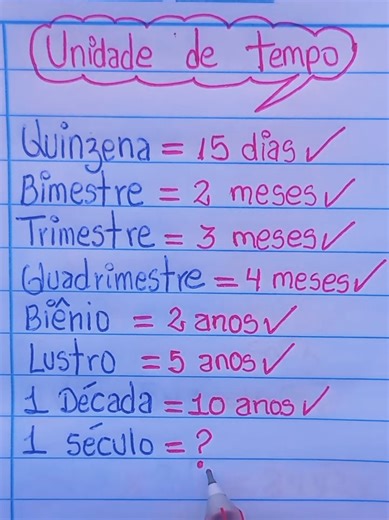 Unidade de tempo
Quinzena = 15 dias ✓
Bimestre = 2 meses ✓
Trimestre = 3 meses ✓
Quadrimestre = 4 meses ✓
Biênio = 2 anos ✓
Lustro = 5 anos ✓
1 Década = 10 anos ✓
1 Século = ?